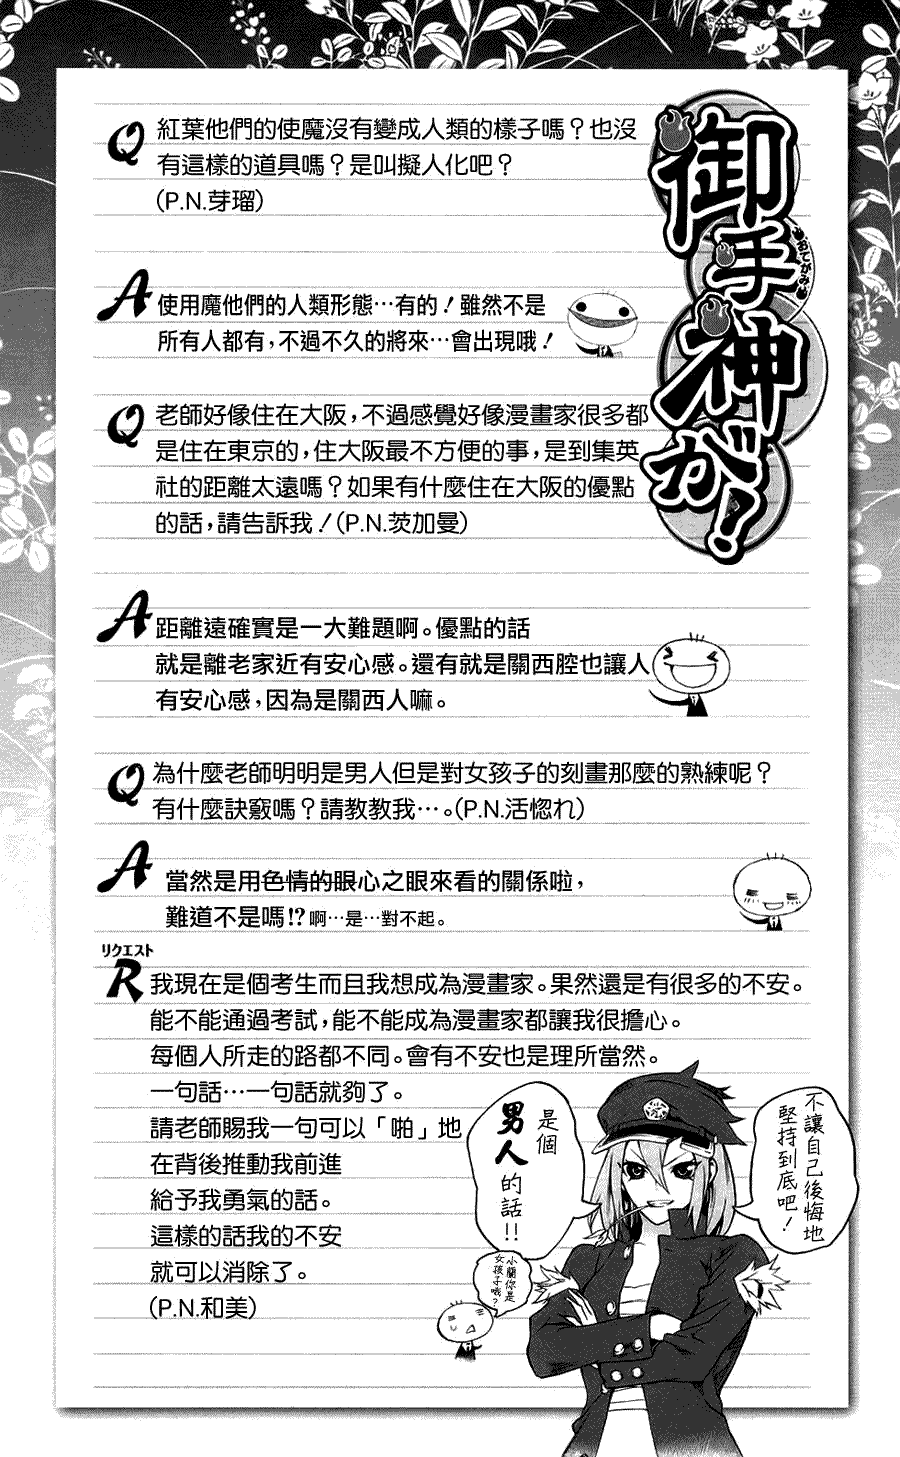 御手神が!
おてがみ
Q 紅葉他們的使魔沒有變成人類的樣子嗎?也沒
有這樣的道具嗎?是叫擬人化吧?
(P.N.芽瑠)
A 使用魔他們的人類形態…有的!雖然不是
所有人都有,不過不久的將來…會出現哦!
Q 老師好像住在大阪,不過感覺好像漫畫家很多都
是住在東京的,住大阪最不方便的事,是到集英
社的距離太遠嗎?如果有什麼住在大阪的優點
的話,請告訴我!(P.N.茨加曼)
A 距離遠確實是一大難題啊。優點的話
就是離老家近有安心感。還有就是關西腔也讓人
有安心感,因為是關西人嘛。
Q 為什麼老師明明是男人但是對女孩子的刻畫那麼的熟練呢?
有什麼訣竅嗎?請教教我…。(P.N.活惚れ)
A 當然是用色情的眼心之眼來看的關係啦,
難道不是嗎!?啊…是…對不起。
リクエスト
R 我現在是個考生而且我想成為漫畫家。果然還是有很多的不安。
能不能通過考試,能不能成為漫畫家都讓我很擔心。
每個人所走的路都不同。會有不安也是理所當然。
一句話…一句話就夠了。
請老師賜我一句可以「啪」地
在背後推動我前進
給予我勇氣的話。
這樣的話我的不安
就可以消除了。
(P.N.和美)
不讓自己後悔地
堅持到底吧!
是個
男人
的話!!
小蘭你是
女孩子哦?